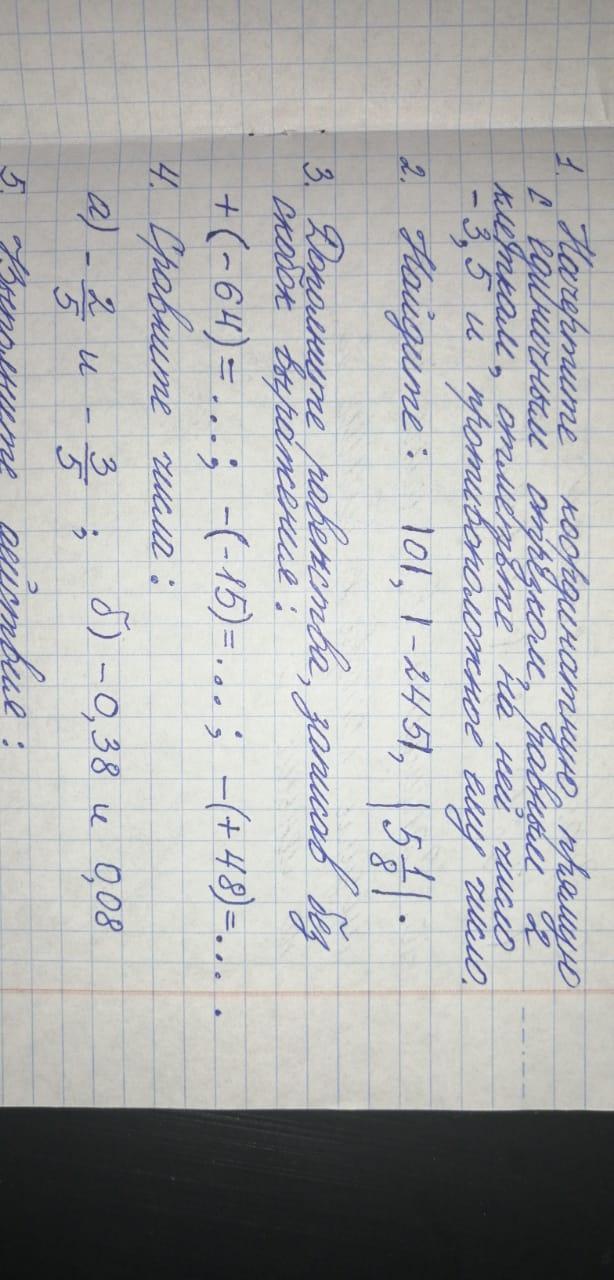 1. Начертите координатную прямую
с единичным отрезком, равным 2
клеткам, отметьте на ней число
-3,5 и противоположное ему число.
2. Найдите: |0|, |-245|, |5 1/8|.
3. Дополните равенства, записав без
скобок выражение:
+(-64)=...; -(-15)=...; -(+48)=... .
4. Сравните числа:
а) -2/5 и -3/5; б) -0,38 и 0,08
5. Выполните действия: